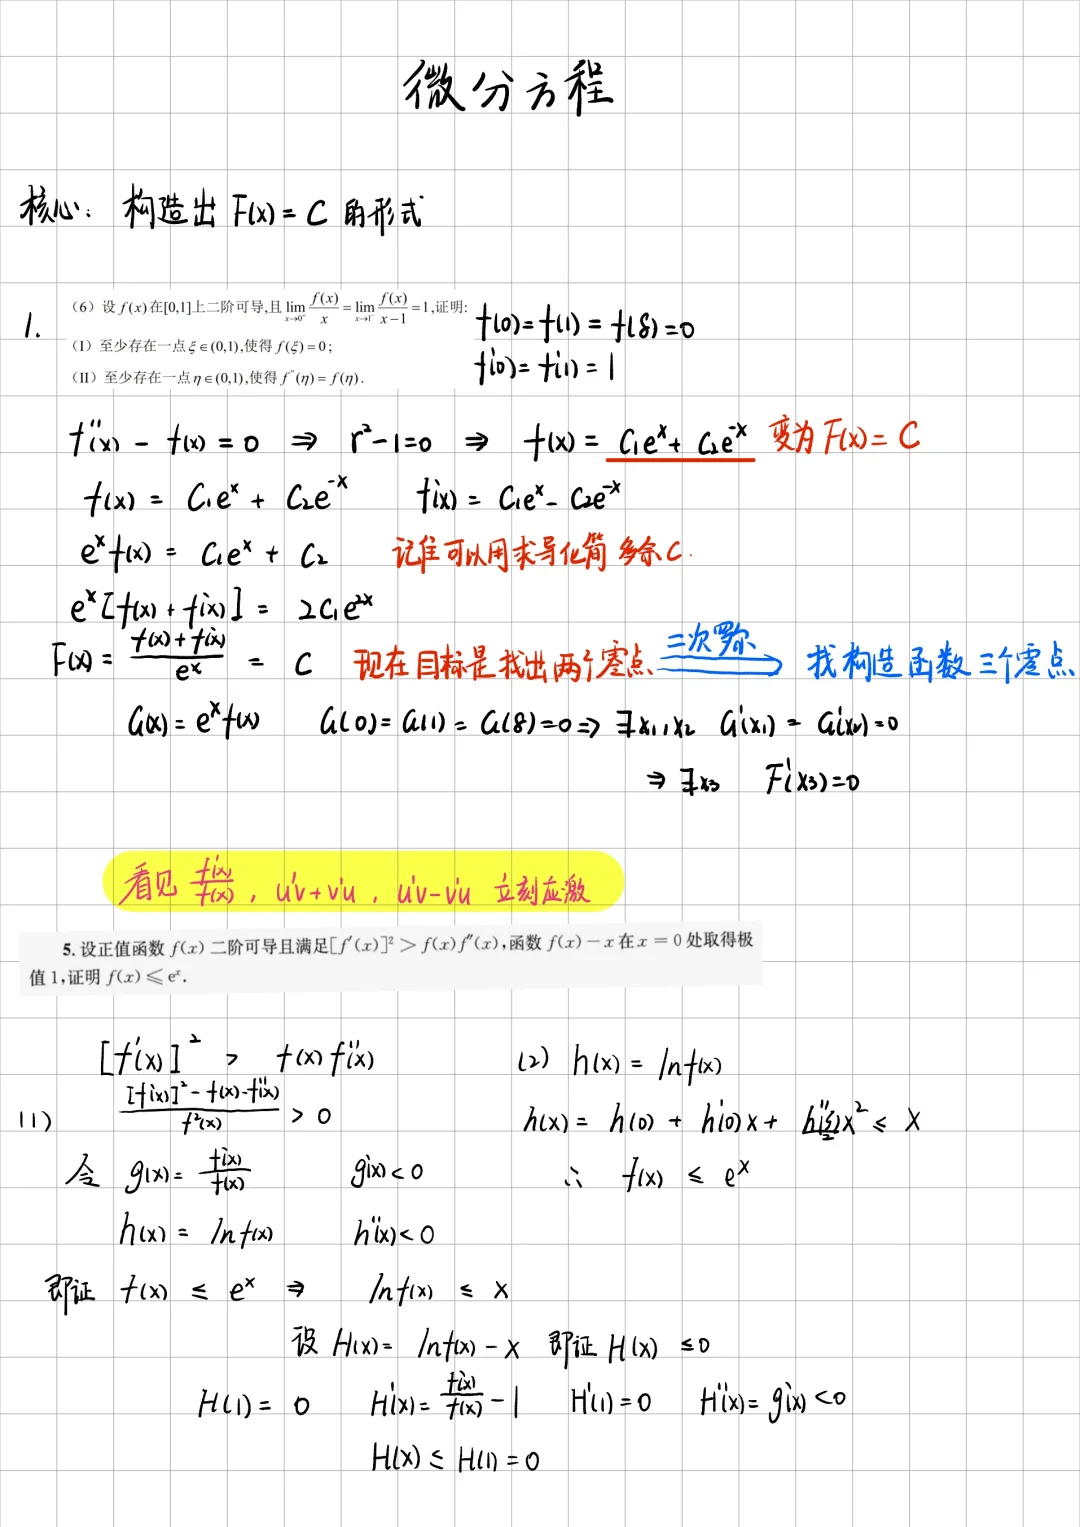 微分方程
核心：构造出 F(x) = C 的形式
1.
（6）设 f(x) 在[0,1]上二阶可导,且 lim_{x→0⁺} f(x)/x = lim_{x→1⁻} f(x)/(x−1) = 1,证明:
（I）至少存在一点 ξ∈(0,1),使得 f(ξ)=0;
（II）至少存在一点 η∈(0,1),使得 f''(η)=f(η).
f(0)=f(1)=f(ξ)=0
f'(0)=f'(1)=1
f''(x) − f(x) = 0 ⇒ r²−1=0 ⇒ f(x) = C₁eˣ + C₂e⁻ˣ 变为 F(x) = C
f(x) = C₁eˣ + C₂e⁻ˣ f'(x) = C₁eˣ − C₂e⁻ˣ
eˣf(x) = C₁eˣ + C₂ 记住可以用求导化简多余C.
eˣ[f(x) + f'(x)] = 2C₁e²ˣ
F(x) = (f(x)+f'(x))/eˣ = C 现在目标是找出两个零点 三次罗尔 ⇒ 找构造函数三个零点
G(x) = eˣf(x) G(0) = G(1) = G(ξ) = 0 ⇒ ∃x₁,x₂ G'(x₁) = G'(x₂) = 0
⇒ ∃x₃ F'(x₃)=0
看见 f'(x)/f(x) , u'v+v'u , u'v−v'u 立刻应激
5. 设正值函数 f(x) 二阶可导且满足[f'(x)]² > f(x)f''(x),函数 f(x)−x 在 x = 0 处取得极
值 1,证明 f(x) ⩽ eˣ.
[f'(x)]² > f(x) f''(x)
(1) ([f'(x)]² − f(x)·f''(x))/f²(x) > 0
令 g(x) = f'(x)/f(x) g'(x) < 0
h(x) = ln f(x) h''(x) < 0
(2) h(x) = ln f(x)
h(x) = h(0) + h'(0)x + h''(ξ)/2 x² ≤ x
∴ f(x) ≤ eˣ
即证 f(x) ≤ eˣ ⇒ ln f(x) ≤ x
设 H(x) = ln f(x) − x 即证 H(x) ≤ 0
H(1) = 0 H'(x) = f'(x)/f(x) − 1 H'(1) = 0 H''(x) = g'(x) < 0
H(x) ≤ H(1) = 0